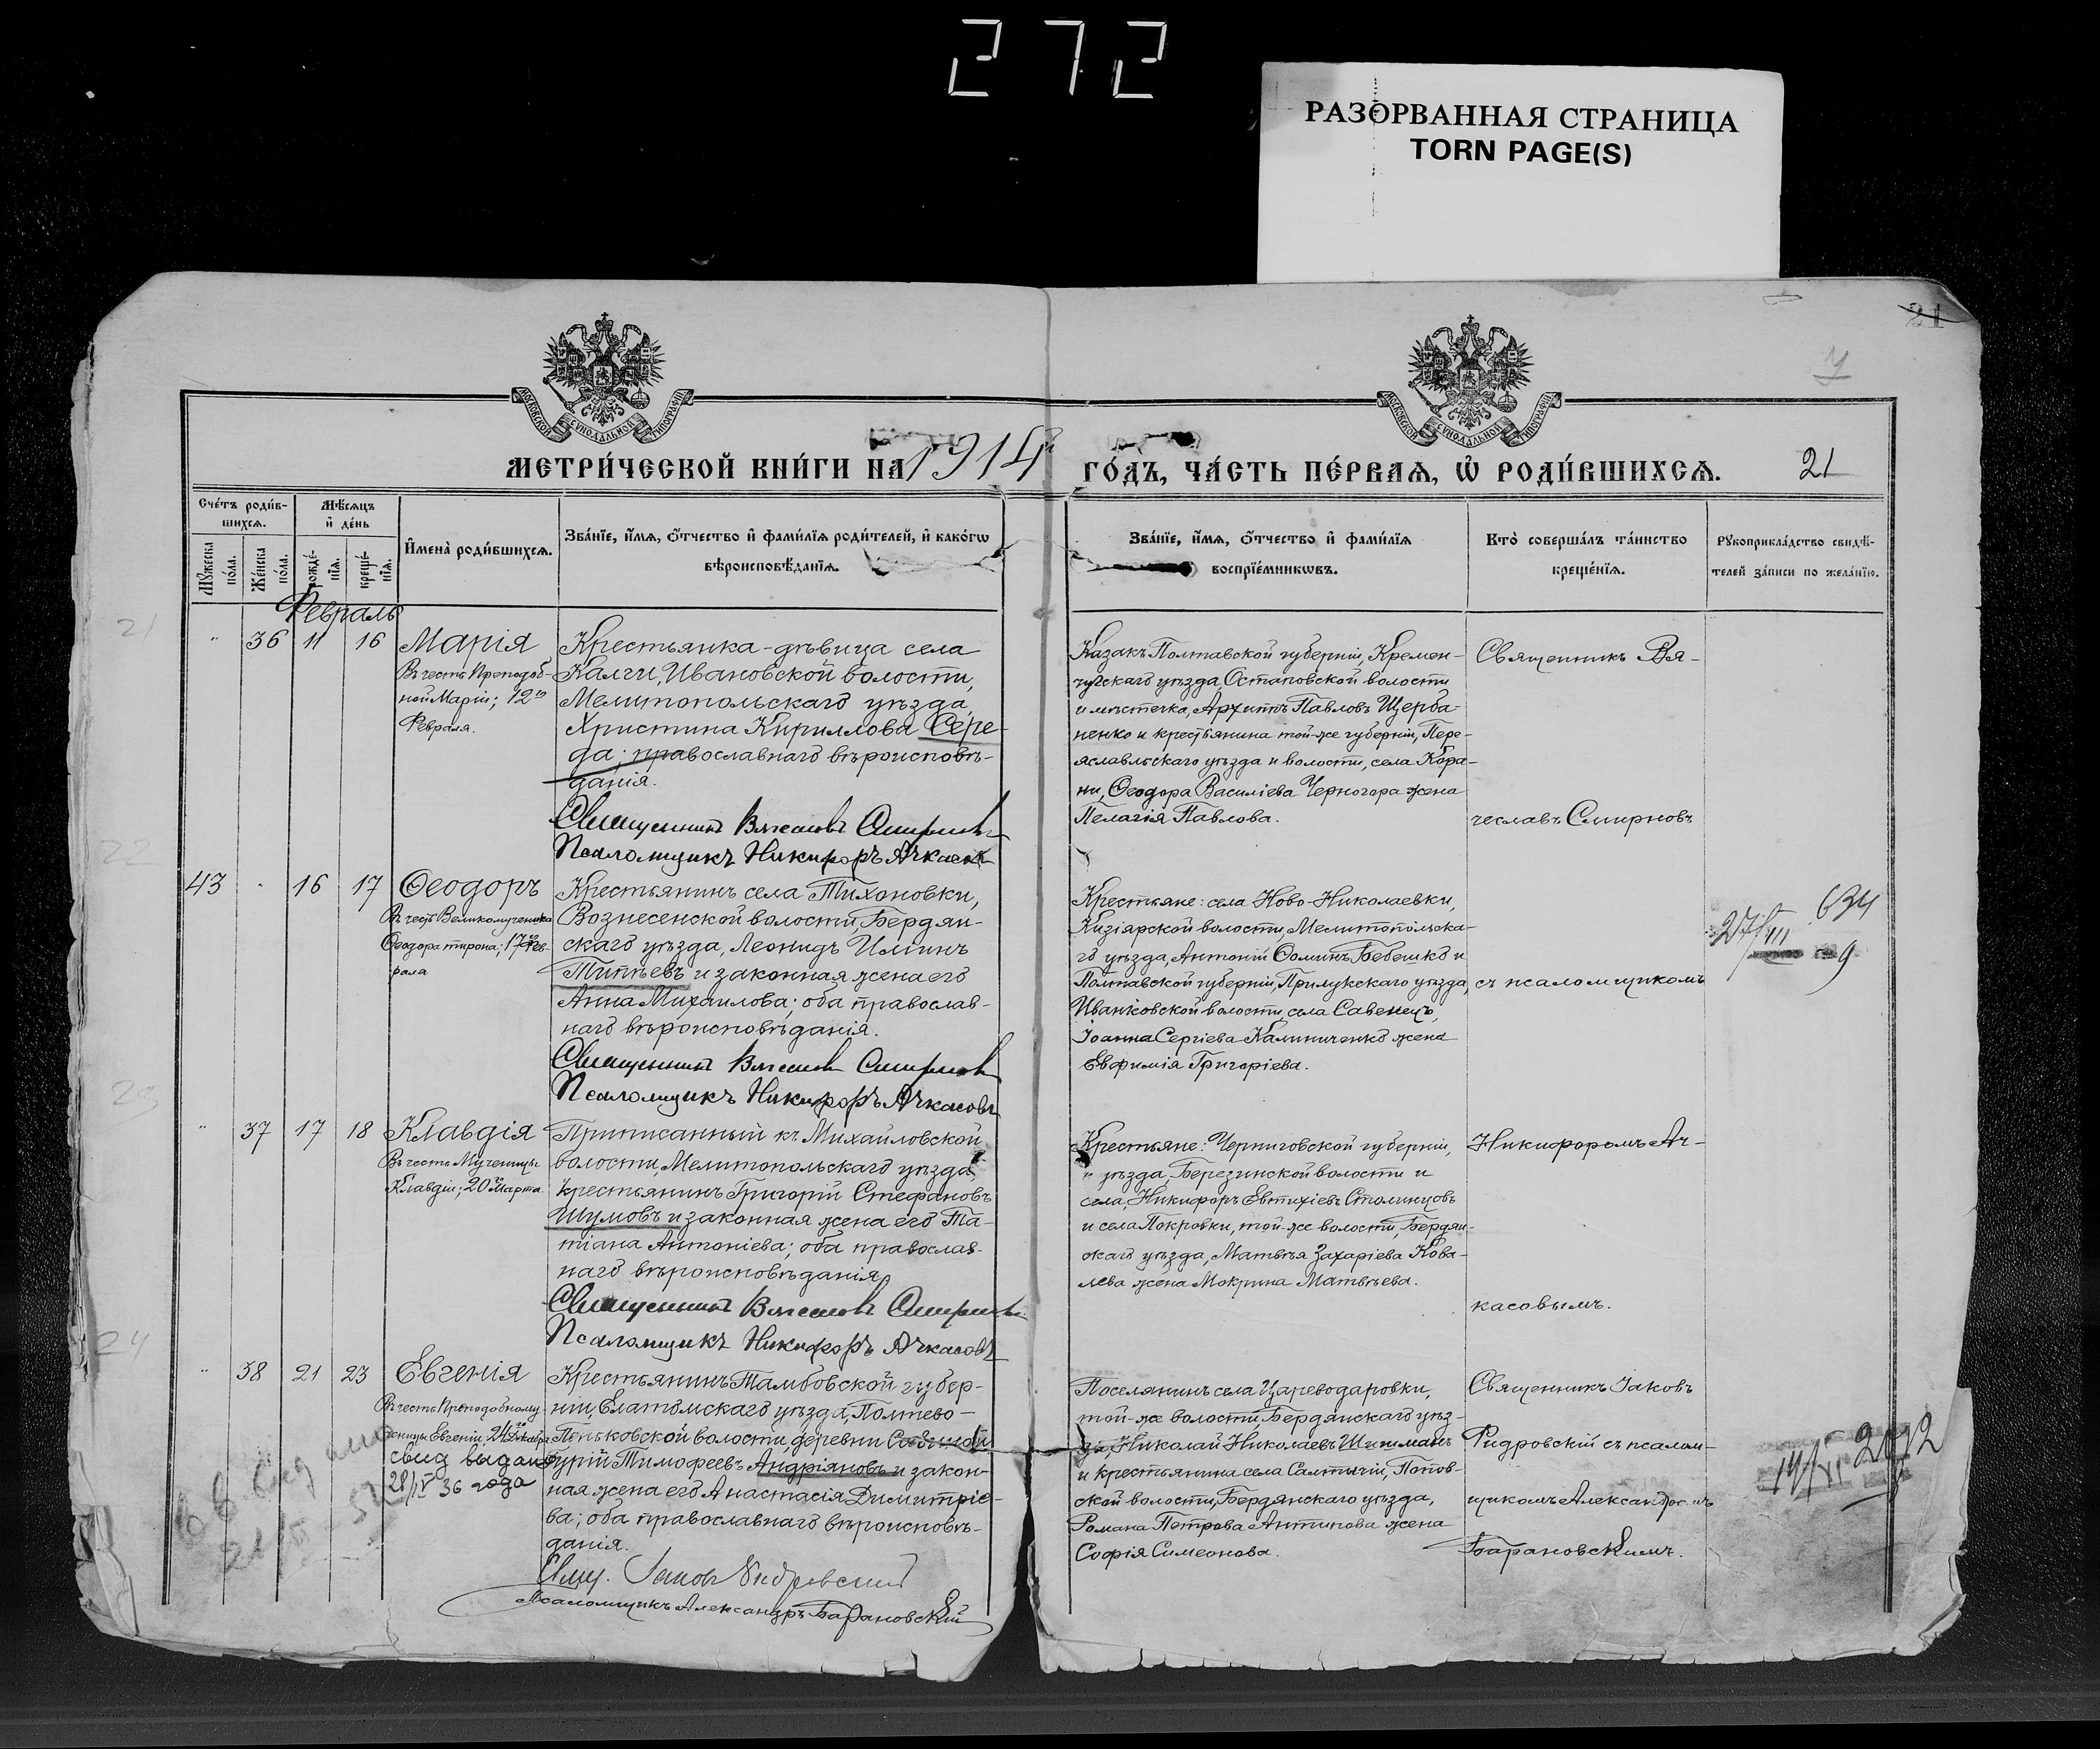 272
РАЗОРВАННАЯ СТРАНИЦА
TORN PAGE(S)
21
МОСКОВСКОЙ СѴНОДАЛЬНОЙ ТИПОГРАФІИ
МОСКОВСКОЙ СѴНОДАЛЬНОЙ ТИПОГРАФІИ
МЕТРИ́ЧЕСКОЙ КНИ́ГИ НА 1914 ГО́ДЪ, ЧА́СТЬ ПЕ́РВАѦ, Ѡ҆ РОДИ́ВШИХСѦ. 21
Сче́тъ роди́в-
шихсѧ.
Мѣ́сѧцъ
и҆ де́нь
Мꙋ́жеска по́ла.
Же́нска по́ла.
рожде́-
нїѧ.
креще́-
нїѧ.
И҆мена̀ роди́вшихсѧ.
Зва́нїе, и҆́мѧ, ѻ҆́тчество и҆ фами́лїѧ роди́телей, и҆ како́гѡ
вѣроисповѣ́данїѧ.
Зва́нїе, и҆́мѧ, ѻ҆́тчество и҆ фами́лїѧ
воспрїе́мникѡвъ.
Кто̀ соверша́лъ та́инство
креще́нїѧ.
Рꙋкоприкла́дство свидѣ́-
телей за́писи по жела́нїю.
Февраль
" 36 11 16 Марія
Въ честь Преподоб-
ной Маріи; 12го
Февраля.
Крестьянка-дѣвица села
Калги, Ивановской волости,
Мелитопольскаго уѣзда,
Христина Кириллова Сере-
да; православнаго вѣроисповѣ-
данія.
Священникъ Вячеславъ Смирновъ
Псаломщикъ Никифоръ Ачкасовъ
Казакъ Полтавской губерніи, Кремен-
чугскаго уѣзда, Остаповской волости
и мѣстечка, Архиппъ Павловъ Щерба-
ненко и крестьянина той-же губерніи, Пере-
яславльскаго уѣзда и волости, села Кора-
ни, Ѳеодора Василіева Черногора жена
Пелагія Павлова.
Священникъ Вя-
чеславъ Смирновъ
43 " 16 17 Ѳеодоръ
Въ честь Великомученика
Ѳеодора тирона; 17го Фев-
раля
Крестьянинъ села Тихоновки,
Вознесенской волости, Бердян-
скаго уѣзда, Леонидъ Илиинъ
Типѣевъ и законная жена его
Анна Михаилова; оба православ-
наго вѣроисповѣданія.
Священникъ Вячеславъ Смирновъ
Псаломщикъ Никифоръ Ачкасовъ
Крестьяне: села Ново-Николаевки,
Кизіярской волости, Мелитопольска-
го уѣзда, Антоній Ѳоминъ Бебешко и
Полтавской губерніи, Прилукскаго уѣзда,
Иваньковской волости, села Савенецъ,
Іоанна Сергіева Калиниченко жена
Евфимія Григоріева.
съ псаломщикомъ
634
27/VII 9
" 37 17 18 Клавдія
Въ честь Мученицы
Клавдіи; 20го Марта.
Приписанный къ Михайловской
волости, Мелитопольскаго уѣзда,
крестьянинъ Григорій Стефановъ
Шумовъ и законная жена его Та-
тіана Антоніева; оба православ-
наго вѣроисповѣданія.
Священникъ Вячеславъ Смирновъ
Псаломщикъ Никифоръ Ачкасовъ
Крестьяне: Черниговской губерніи,
" уѣзда, Березинской волости и
села, Никифоръ Евтихіевъ Столинцовъ
и села Покровки, той-же волости, Бердян-
скаго уѣзда, Матвѣя Захаріева Кова-
лева жена Мокрина Матвѣева.
Никифоромъ Ач-
касовымъ.
" 38 21 23 Евгенія
Въ честь Преподобному-
ченицы Евгеніи; 24го Декабря
свид выдано
28/IV 36 года
Крестьянинъ Тамбовской губер-
ніи, Елатомскаго уѣзда, Полтево-
Пеньковской волости, деревни
Гурій Тимофеевъ Андріяновъ и закон-
ная жена его Анастасія Димитріе-
ва; оба православнаго вѣроисповѣ-
данія.
Свящ. Іаковъ Ридровскій
Псаломщикъ Александръ Барановскій
Поселянинъ села Цареводаровки,
той-же волости, Бердянскаго уѣз-
да, Николай Николаевъ Шишманъ
и крестьянина села Салтычіи, Попов-
ской волости, Бердянскаго уѣзда,
Романа Петрова Антипова жена
Софія Симеонова.
Священникъ Іаковъ
Ридровскій съ псалом-
щикомъ Александромъ
Барановскимъ.
2092
19/VI
21
22
23
24